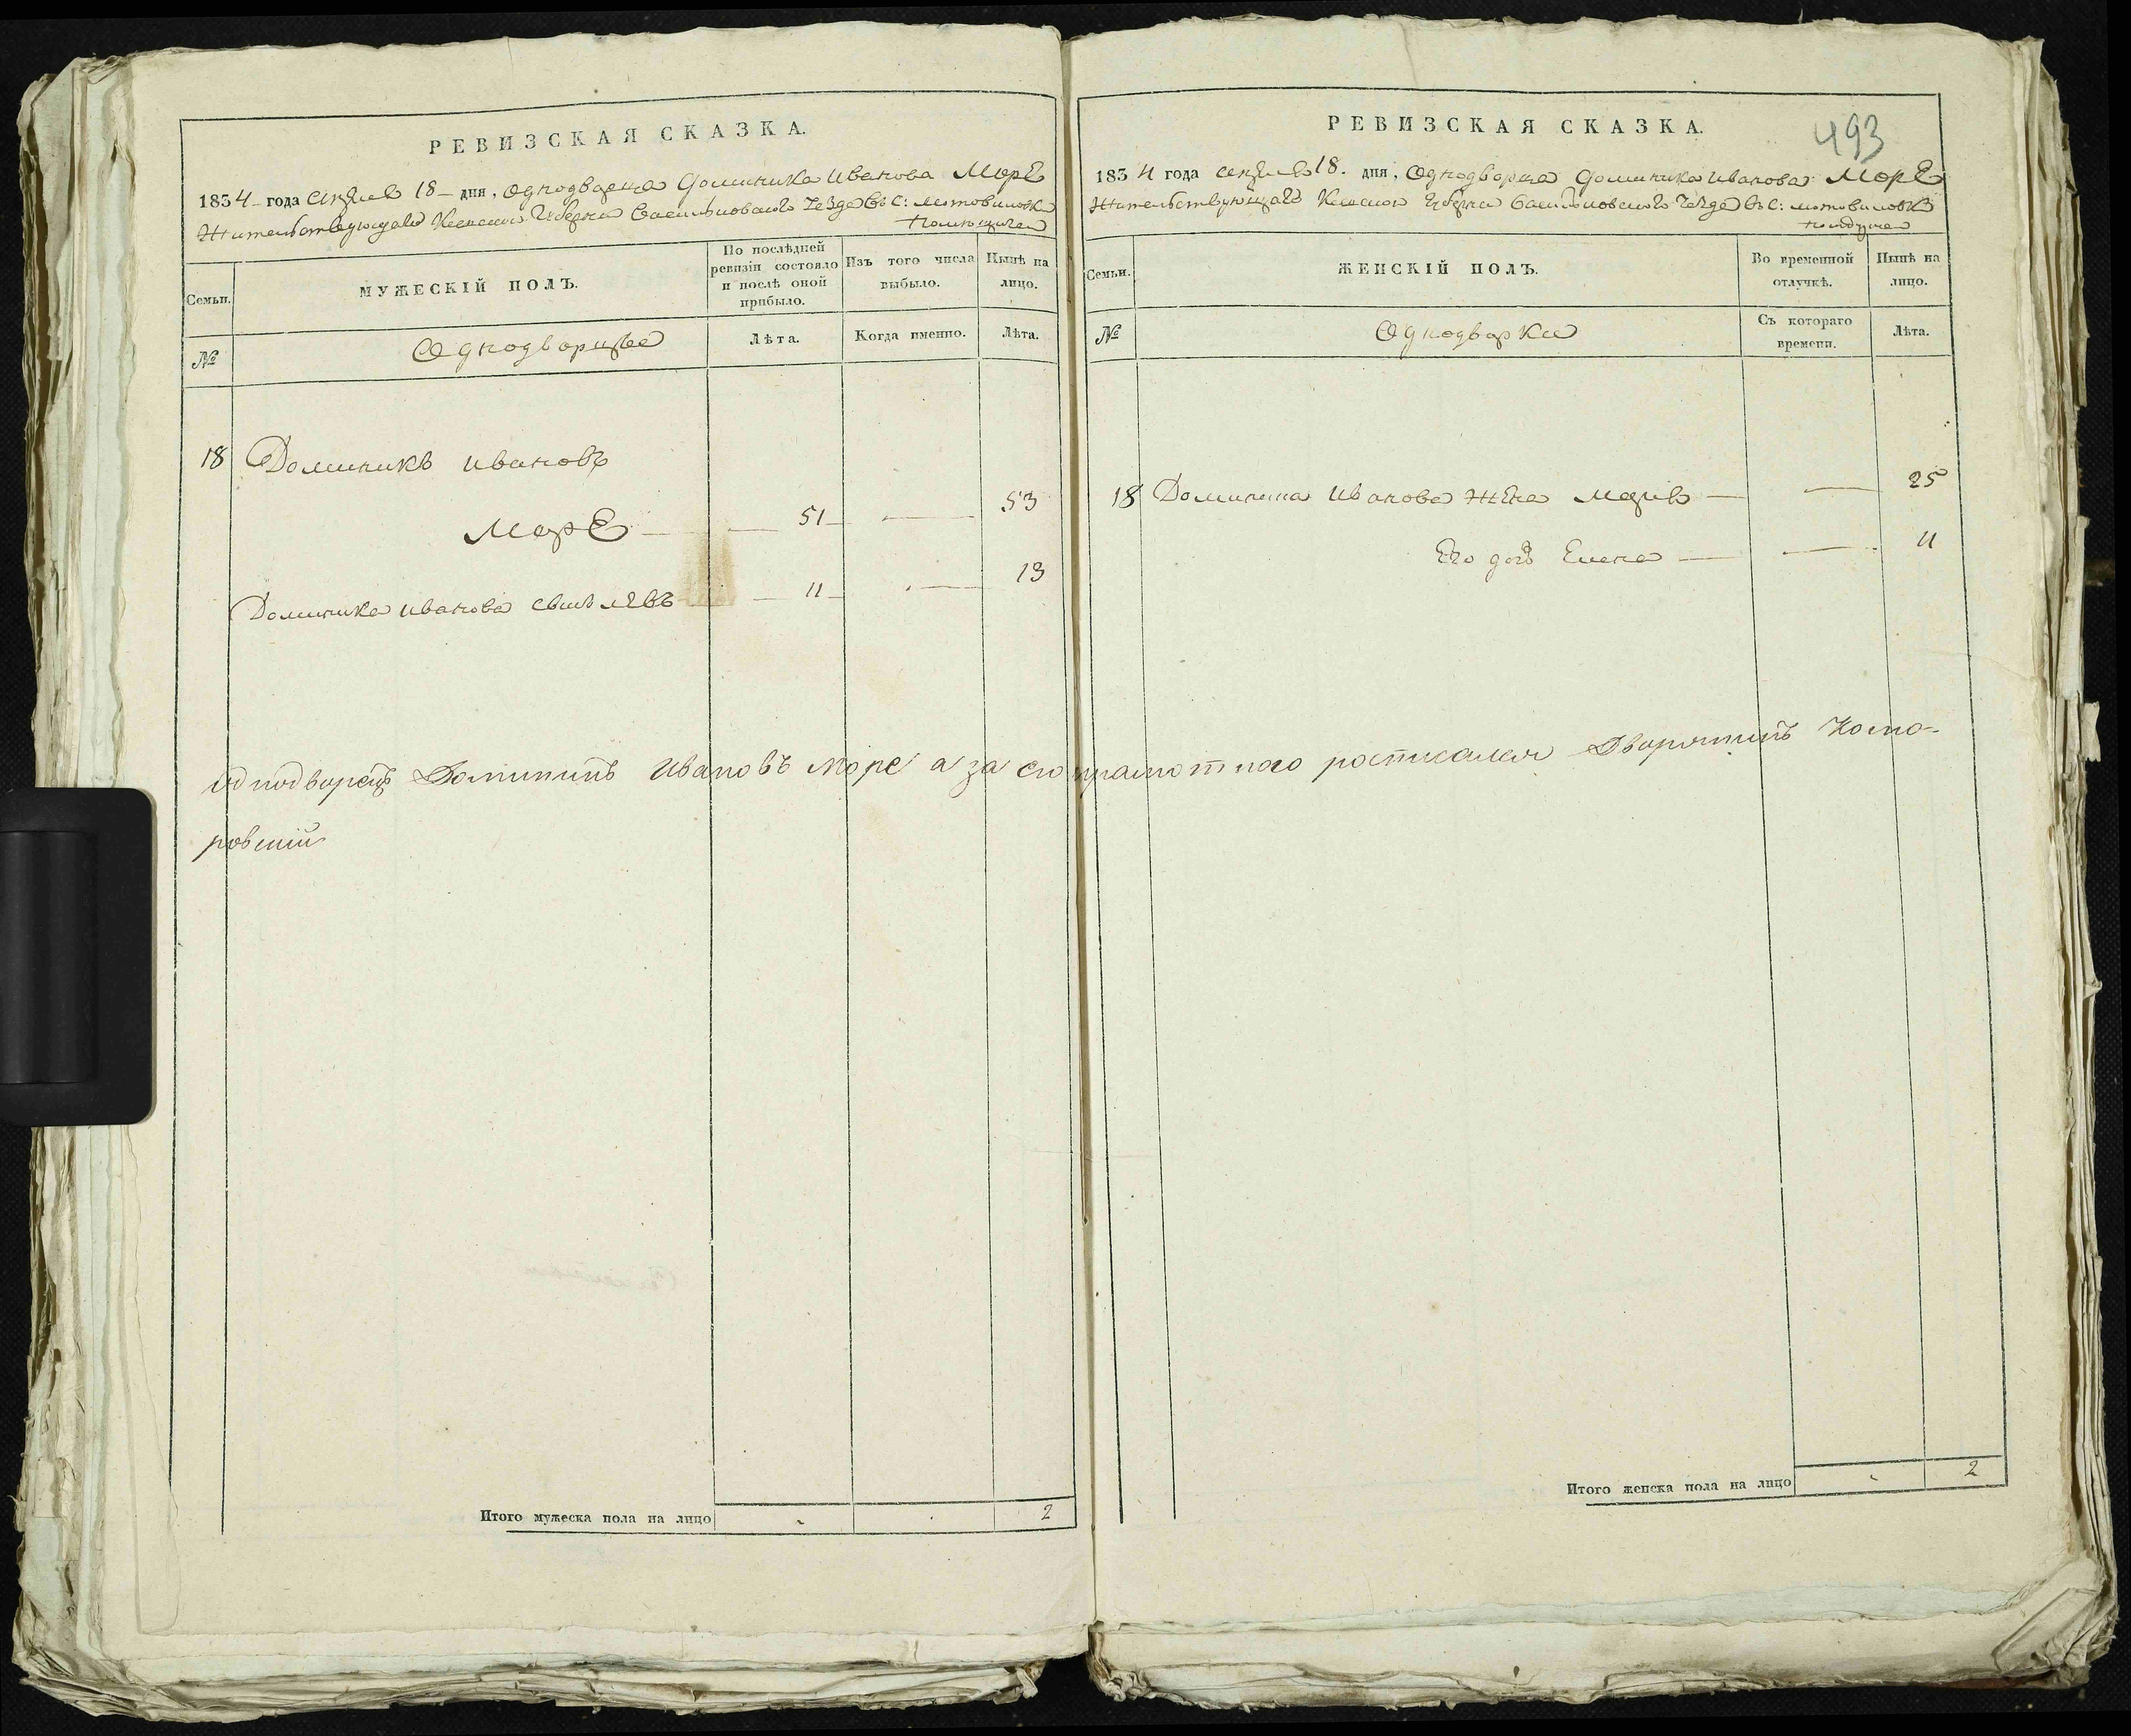 РЕВИЗСКАЯ СКАЗКА.
1834 года 18 дня, Однодворца Доминика Иванова Море
Жительствующаго Киевской Губернии Васильковского Уезда въ с: Мотовиловке
Семьи.
МУЖЕСКІЙ ПОЛЪ.
По послѣдней ревизіи состояло и послѣ оной прибыло.
Изъ того числа выбыло.
Нынѣ на лицо.
№
Однодворцы
Лѣта.
Когда именно.
Лѣта.
18 Доминикъ Ивановъ
Море 51 53
Доминика Иванова сынъ Левъ 11 13
Однодворецъ Доминикъ Ивановъ Море а за его росписался Дворянинъ Комо-
ровский
Итого мужеска пола на лицо 2
493
РЕВИЗСКАЯ СКАЗКА.
1834 года 18. дня, Однодворца Доминика Иванова Море
Жительствующаго Киевской Губернии Васильковского Уезда въ с: Мотовиловке
Семьи.
ЖЕНСКІЙ ПОЛЪ.
Во временной отлучкѣ.
Нынѣ на лицо.
№
Однодворки
Съ котораго времени.
Лѣта.
18 Доминика Иванова жена 25
Его дочь Елена 11
Итого женска пола на лицо 2